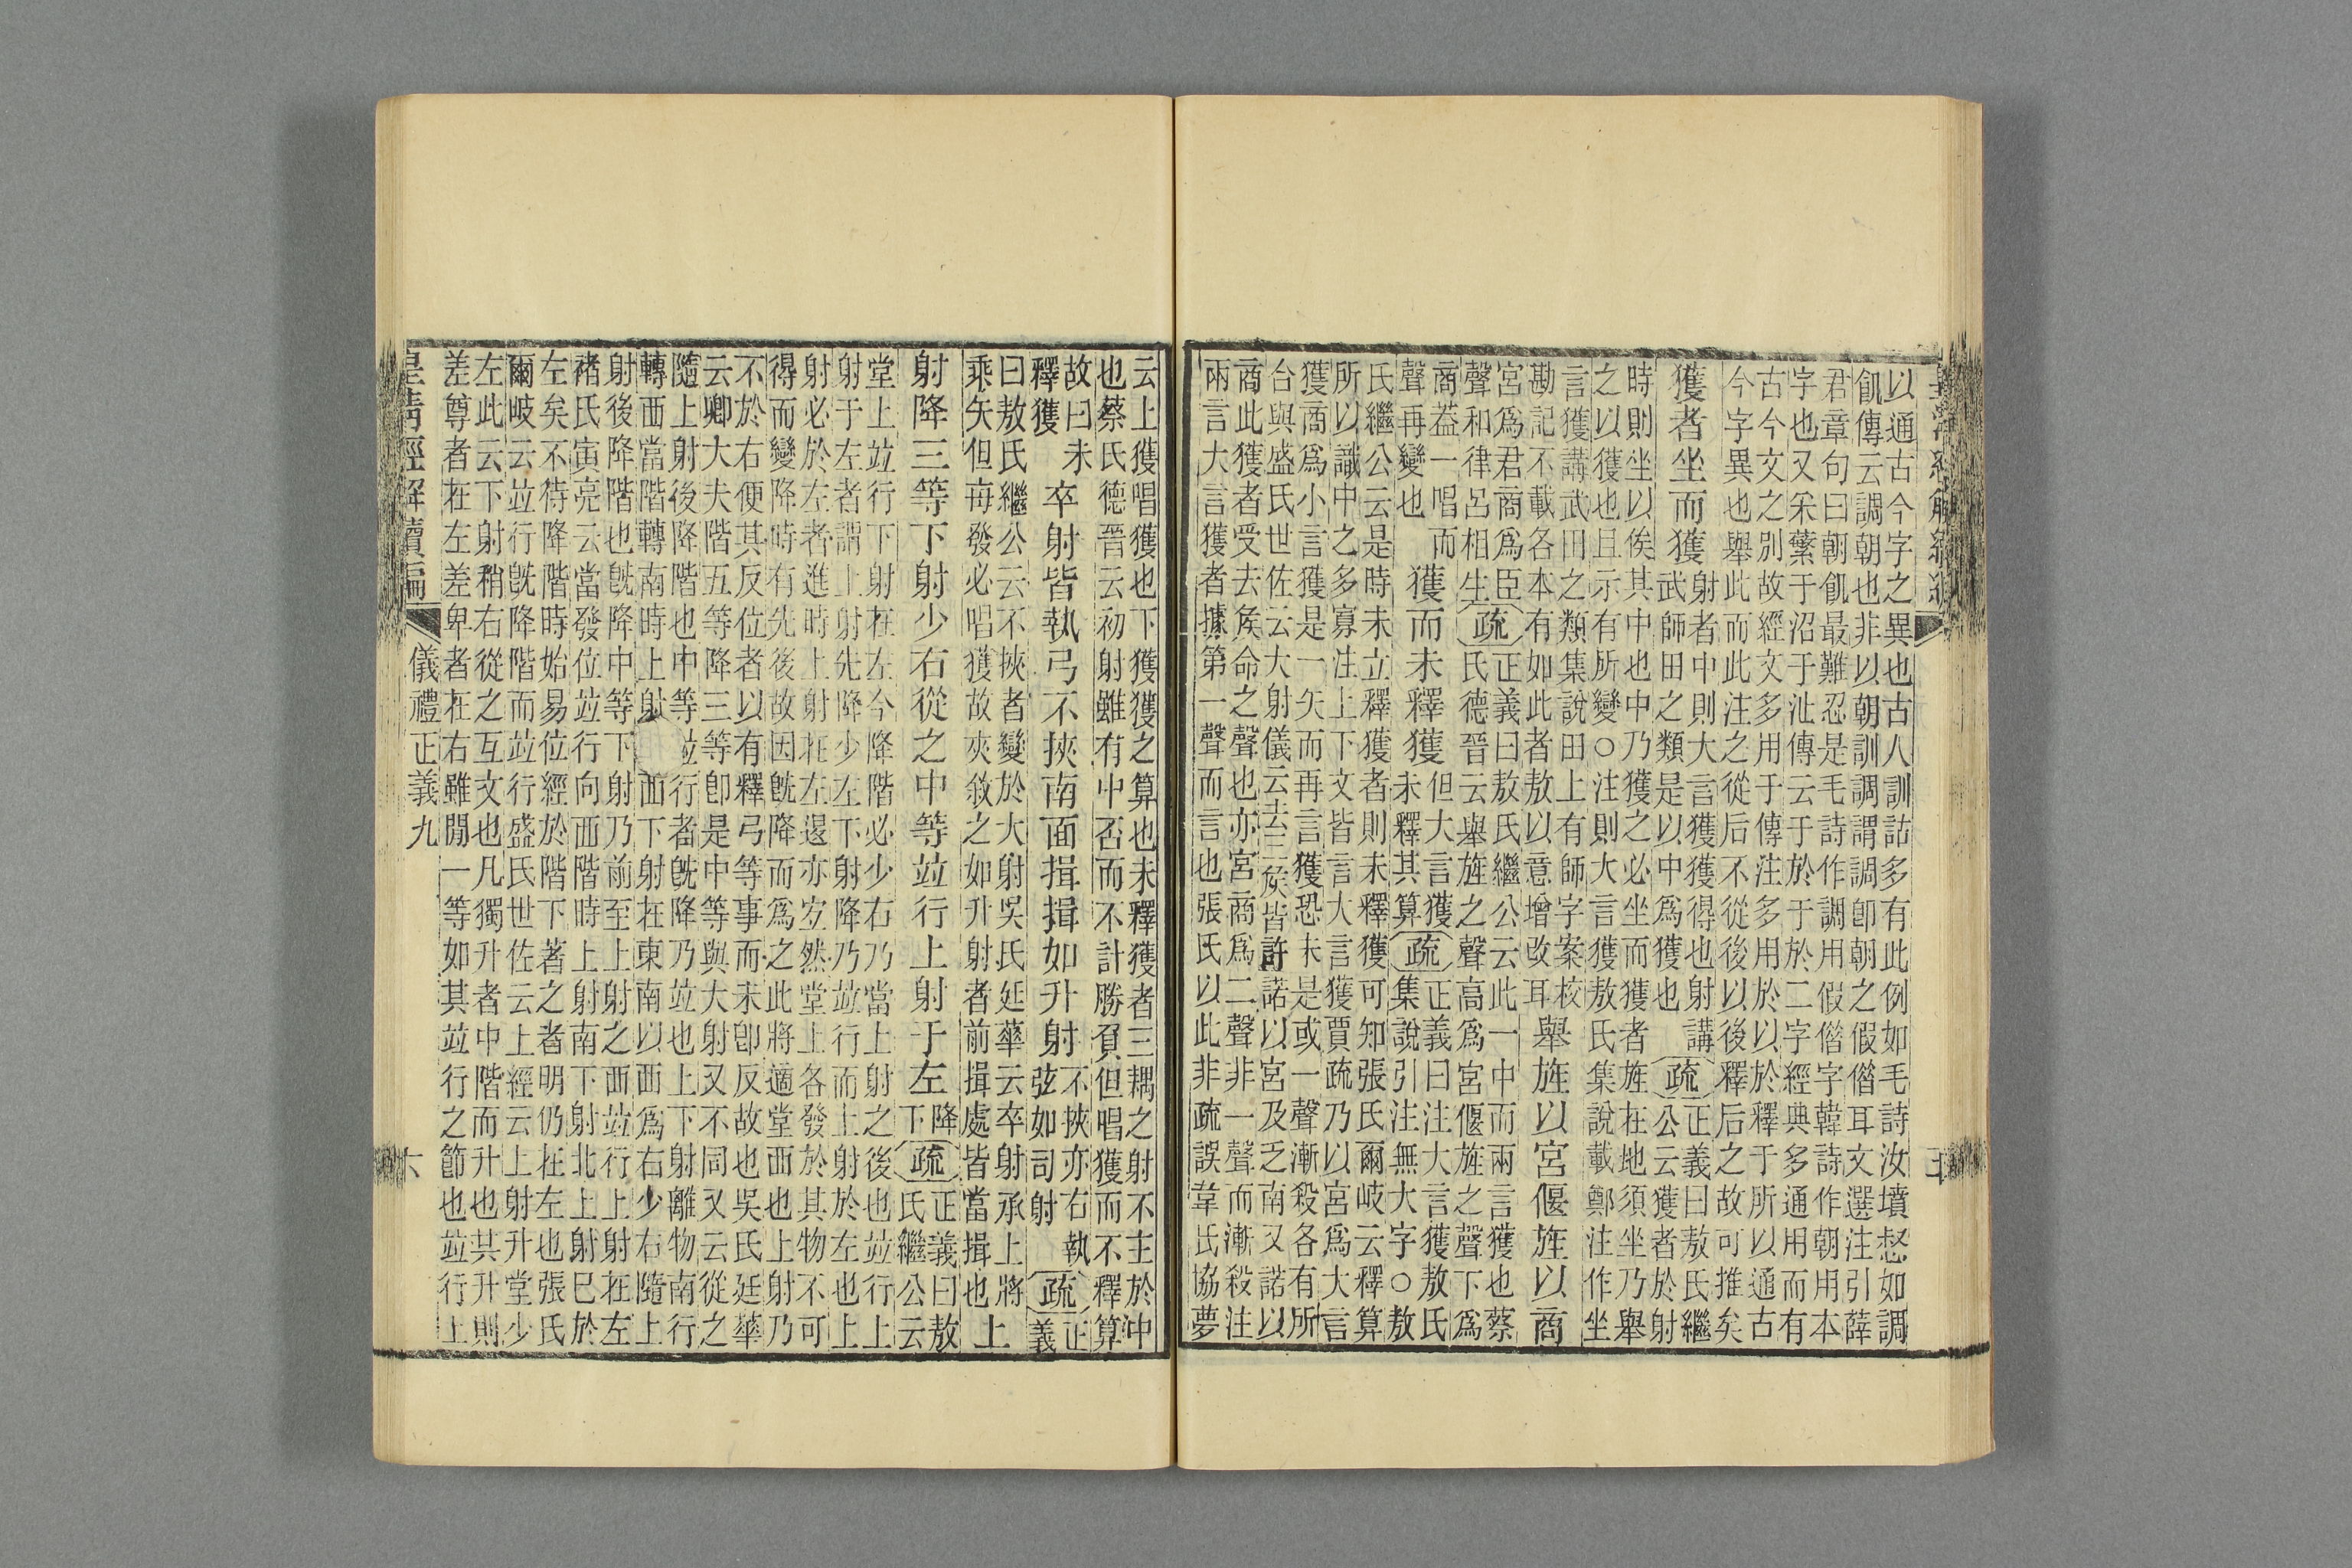 以通古今字之異也古人訓詁多有此例如毛詩汝墳惄如調
飢傳云調朝也非以朝訓調謂調卽朝之假僭耳文選注引薛
君章句曰朝飢最難忍是毛詩作調用假僭字韓詩作朝用本
字也又采蘩于沼于沚傳云于於于於二字經典多通用而有
古今文之別故經文多用于傳注多用於以於釋于所以通古
今字異也舉此而此注之從后不從後以後釋后之故可推矣
獲者坐而獲
射者中則大言獲獲得也射講
武師田之類是以中爲獲也
疏
正義曰敖氏繼
公云獲者於射
時則坐以俟其中也中乃獲之必坐而獲者旌在地須坐乃舉
之以獲也且示有所變○注則大言獲敖氏集說載鄭注作坐
言獲講武田之類集說田上有師字案校
勘記不載各本有如此者敖以意增改耳
舉旌以宮偃旌以商
宮爲君商爲臣
聲和律呂相生
疏
正義曰敖氏繼公云此一中而兩言獲也蔡
氏德晉云舉旌之聲高爲宮偃旌之聲下爲
商葢一唱而
聲再變也
獲而未釋獲
但大言獲
未釋其算
疏
正義曰注大言獲敖氏
集說引注無大字○敖
氏繼公云是時未立釋獲者則未釋獲可知張氏爾岐云釋算
所以識中之多寡注上下文皆言大言獲賈疏乃以宮爲大言
獲商爲小言獲是一矢而再言獲恐未是或一聲漸殺各有所
台與盛氏世佐云大射儀云去三矦皆許諾以宮及乏南又諾以
商此獲者受去矦命之聲也亦宮商爲二聲非一聲而漸殺注
兩言大言獲者據第一聲而言也張氏以此非疏誤韋氏協夢
云上獲唱獲也下獲獲之算也未釋獲者三耦之射不主於中
也蔡氏德晉云初射雖有中否而不計勝負但唱獲而不釋算
故曰未
釋獲
卒射皆執弓不挾南面揖揖如升射
不挾亦右執
弦如司射
疏
正
義
曰敖氏繼公云不挾者變於大射吳氏廷華云卒射承上將
乘矢但每發必唱獲故夾敘之如升射者前揖處皆當揖也
上
射降三等下射少右從之中等竝行上射于左
降
下
疏
正義曰敖
氏繼公云
堂上竝行下射在左今降階必少右乃當上射之後也竝行上
射于左者謂上射先降少左下射降乃竝行而上射於左也上
射必於左者進時上射在左退亦宜然堂上各發於其物不可
得而變降時有先後故因旣降而爲之此將適堂西也上射乃
不於右便其反位者以有釋弓等事而未卽反故也吳氏廷華
云卿大夫階五等降三等卽是中等與大射又不同又云從之
隨上射後降階也中等竝行者旣降乃竝也上下射離物南行
轉西當階轉南時上射面下射在東南以西爲右少右隨上
射後降階也旣降中等下射乃前至上射之西竝行上射在左
褚氏寅亮云當發位竝行向西階時上射南下射北上射巳於
左矣不待降階時始易位經於階下著之者明仍在左也張氏
爾岐云竝行旣降階而竝行盛氏世佐云上經云上射升堂少
左此云下射稍右從之互文也凡獨升者中階而升也其升則
差尊者在左差卑者在右雖閒一等如其竝行之節也竝行上
皇淸經解續編
儀禮正義九
六